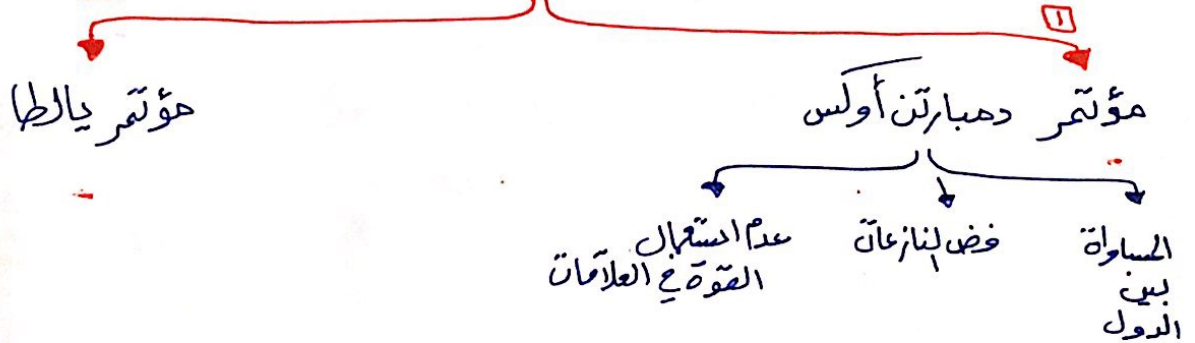 ١
مؤتمر دمبارتن أوكس
مؤتمر يالطا
المساواة
بين
الدول
فض النازعات
عدم استعمال
القوة في العلاقات